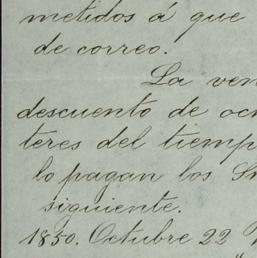 metidos á que
de correo.
La ven
descuento de oc
teres del tiemp
lo pagan los S
siguiente.
1850. Octubre 22